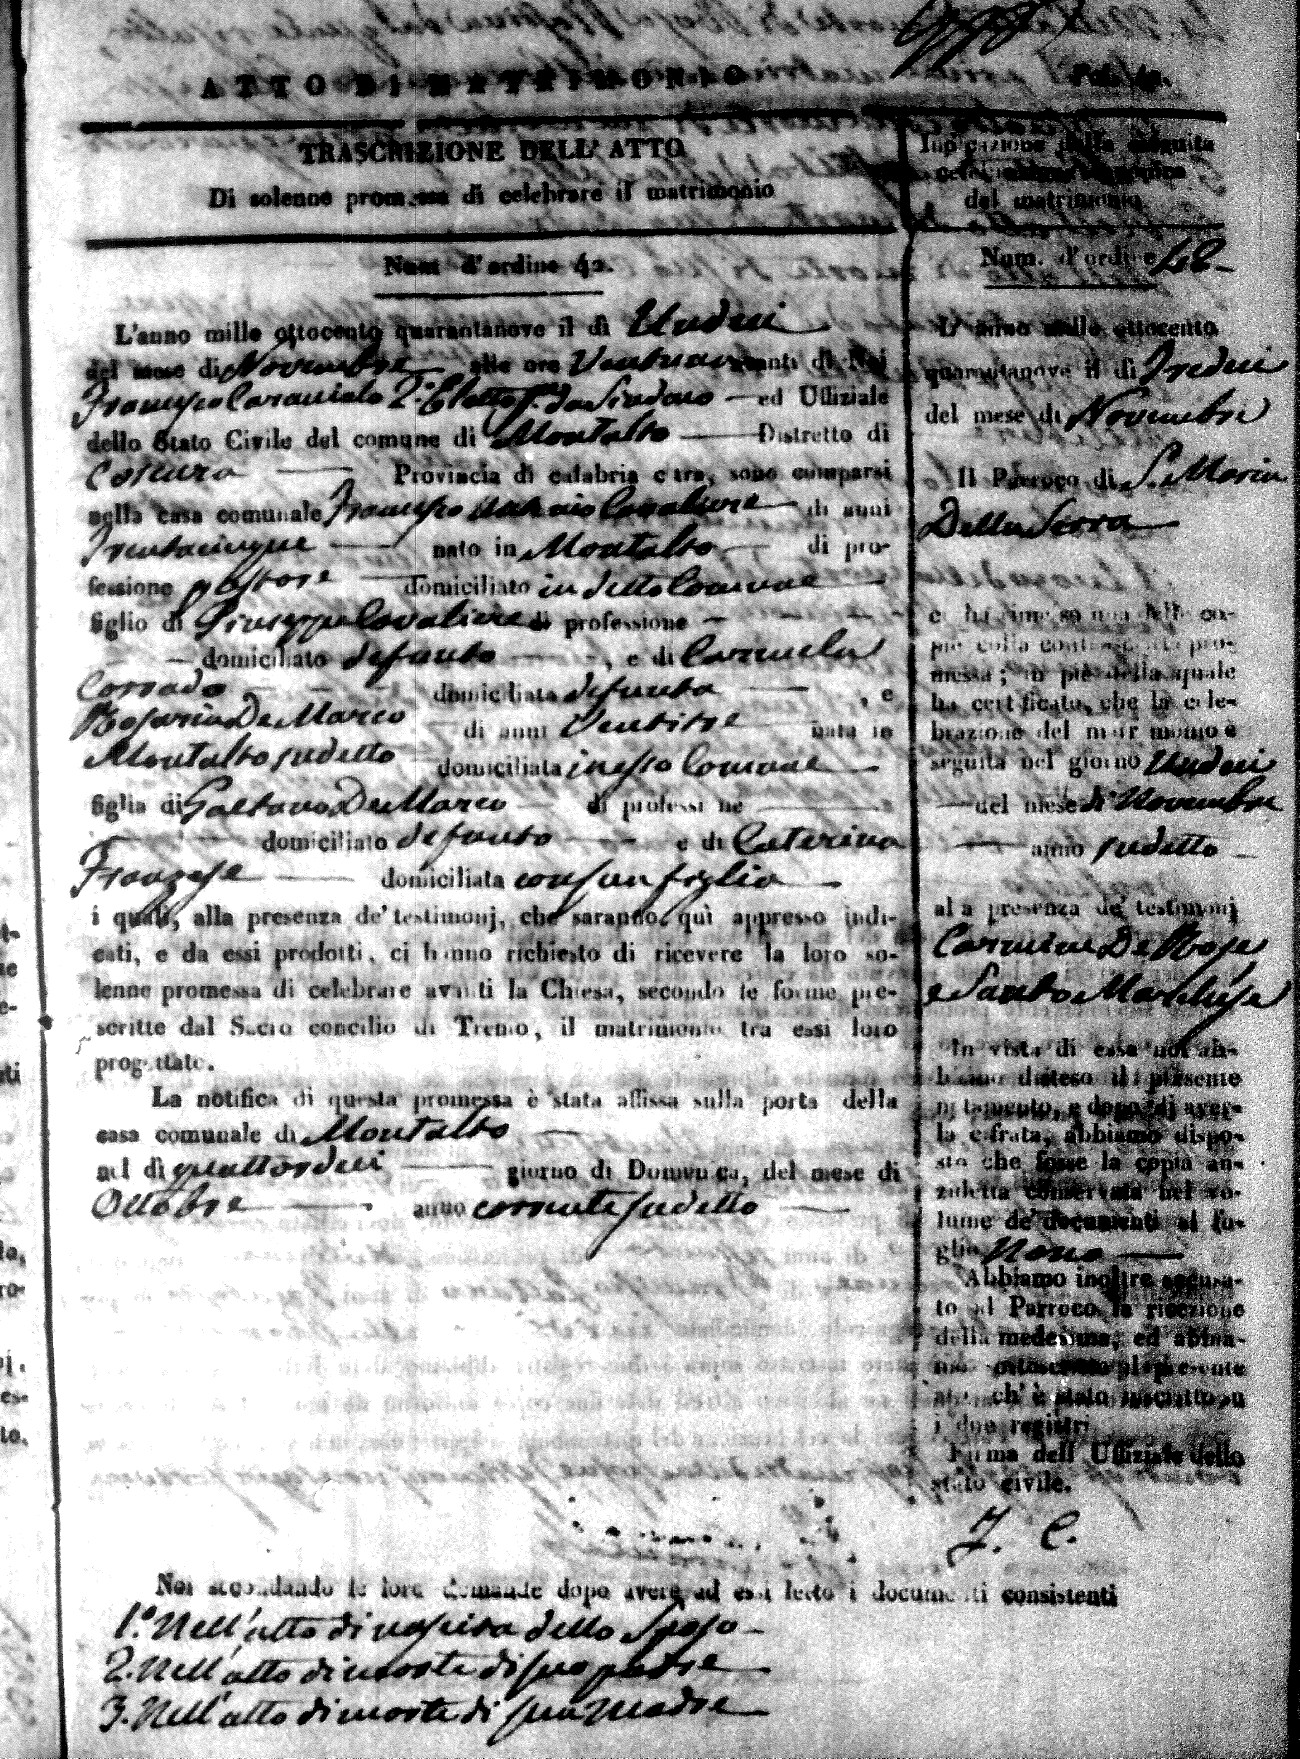 ATTO DI MATRIMONIO
TRASCRIZIONE DELL' ATTO
Di solenne promessa di celebrare il matrimonio
Num d'ordine 42.
L'anno mille ottocento quarantanove il di Undici
del mese di Novembre alle ore avanti di Noi
Francesco 2.° Eletto da Sindaco ed Uffiziale
dello Stato Civile del comune di Montalto Distretto di
Cosenza Provincia di calabria citra, sono comparsi
nella casa comunale Francesco Cavaliere di anni
Trentacinque nato in Montalto di pro-
fessione pastore domiciliato in detto Comune
figlio di Giuseppe Cavaliere di professione
domiciliato defunto , e di Carmela
Corrado domiciliata defunta , e
Rosaria De Marco di anni Ventitre nata in
Montalto sudetto domiciliata in esso Comune
figlia di Gaetano De Marco di professi ne
domiciliato defunto e di Caterina
Franzese domiciliata con sua figlia
i quali, alla presenza de' testimonj, che saranno qui appresso indi-
cati, e da essi prodotti, ci hanno richiesto di ricevere la loro so-
lenne promessa di celebrare avanti la Chiesa, secondo le forme pre-
scritte dal Sacro concilio di Trento, il matrimonio tra essi loro
progettato.
La notifica di questa promessa è stata affissa sulla porta della
casa comunale di Montalto
nel dì quattordici giorno di Domenica, del mese di
Ottobre anno corrente sudetto
Noi secondando le loro demande dopo avere ad essi letto i documenti consistenti
1.° Nell'atto di nascita dello Sposo
2. Nell'atto di morte di suo padre
3. Nell'atto di morte di sua madre
Fol. 42.
Indicazione della seguita
celebrazione canonica
del matrimonio
Num. d'ordine 42
L'anno mille ottocento
quarantanove il di Tredici
del mese di Novembre
Il Parroco di S. Maria
Della Serra
ci ha rimesso una delle co-
pie della contro pro-
messa; in piè della quale
ha certificato, che la cele-
brazione del matrimonio è
seguita nel giorno Undici
del mese di Novembre
anno sudetto
alla presenza de' testimonj
Carmine De Rose
e Santo Marchese
In vista di essa noi ab-
biamo disteso il presente
notamento, e dopo di aver-
la cifrata, abbiamo dispo-
sto che fosse la copia an-
zidetta conservata nel vo-
lume de' documenti al fo-
glio Nono
Abbiamo inoltre accusa-
to al Parroco la ricezione
della medesima, ed abbia-
mo sottoscritto il presente
atto ch' è stato inscritto su
i due registri
Firma dell' Uffiziale dello
stato civile.
F. C.